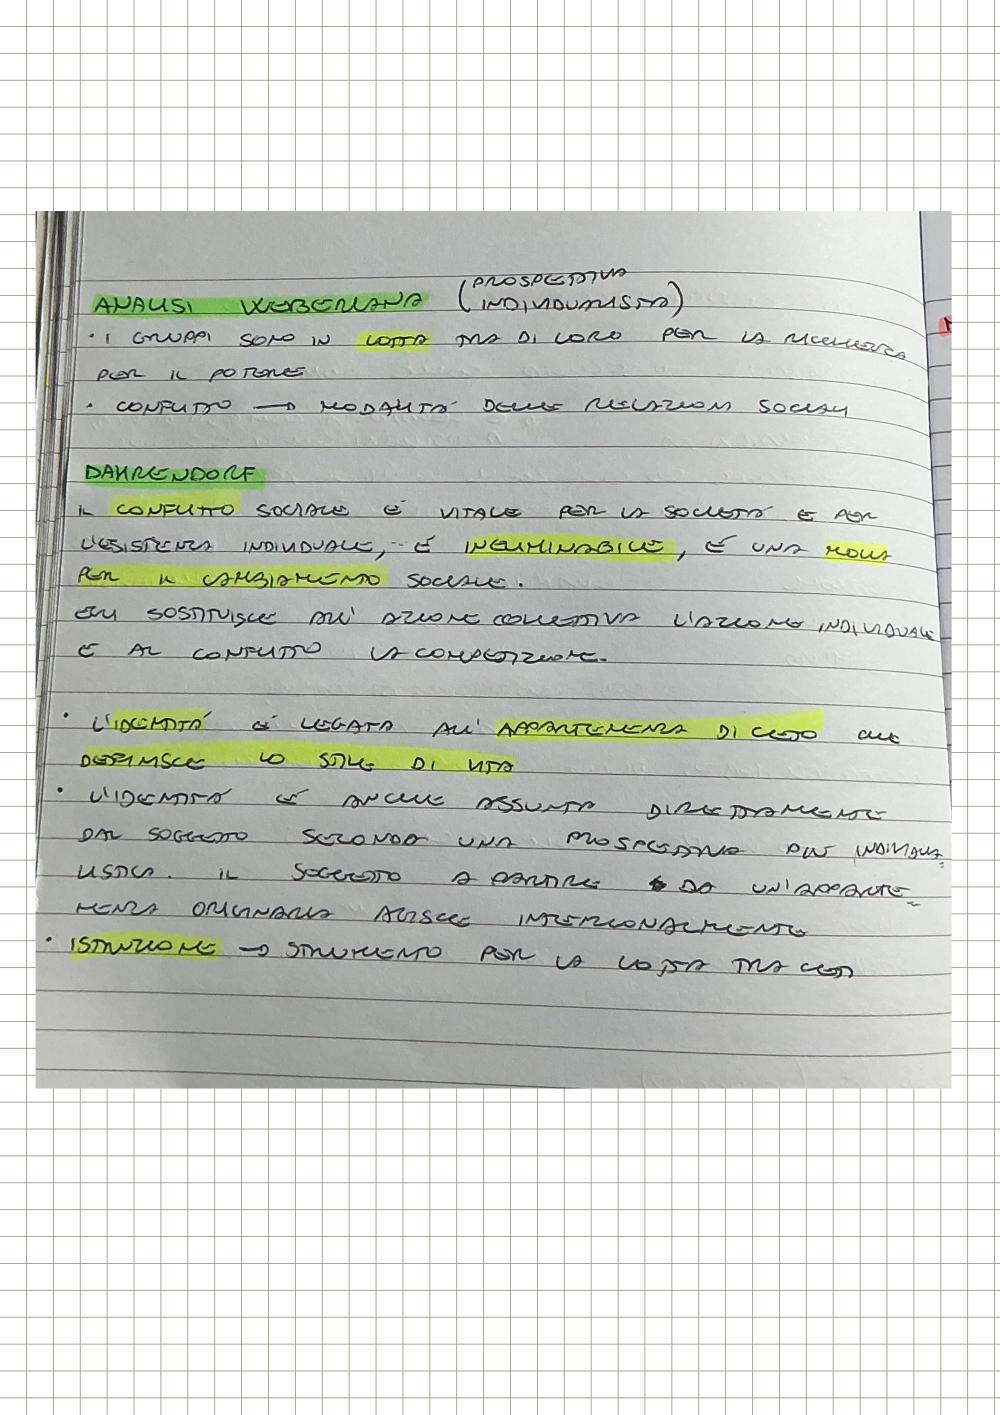 ANALISI WEBERIANA (PROSPETTIVA INDIVIDUALISTA)
• I GRUPPI SONO IN LOTTA TRA DI LORO PER LA RICCHEZZA
PER IL POTERE
• CONFLITTO → MODALITÀ DELLE RELAZIONI SOCIALI
DAHRENDORF
IL CONFLITTO SOCIALE È VITALE PER LA SOCIETÀ E PER
L'ESISTENZA INDIVIDUALE, È INELIMINABILE, È UNA MOLLA
PER IL CAMBIAMENTO SOCIALE.
EGLI SOSTITUISCE ALL'AZIONE COLLETTIVA L'AZIONE INDIVIDUALE
E AL CONFLITTO LA COMPETIZIONE.
• L'IDENTITÀ È LEGATA ALL'APPARTENENZA DI CETO CHE
DEFINISCE LO STILE DI VITA
• L'IDENTITÀ È ANCHE ASSUNTA DIRETTAMENTE
DAL SOGGETTO SECONDO UNA PROSPETTIVA PIÙ INDIVIDUA=
LISTICA. IL SOGGETTO A PARTIRE DA UN'APPARTE=
NENZA ORIGINARIA AGISCE INTENZIONALMENTE
• ISTRUZIONE → STRUMENTO PER LA LOTTA TRA CETI